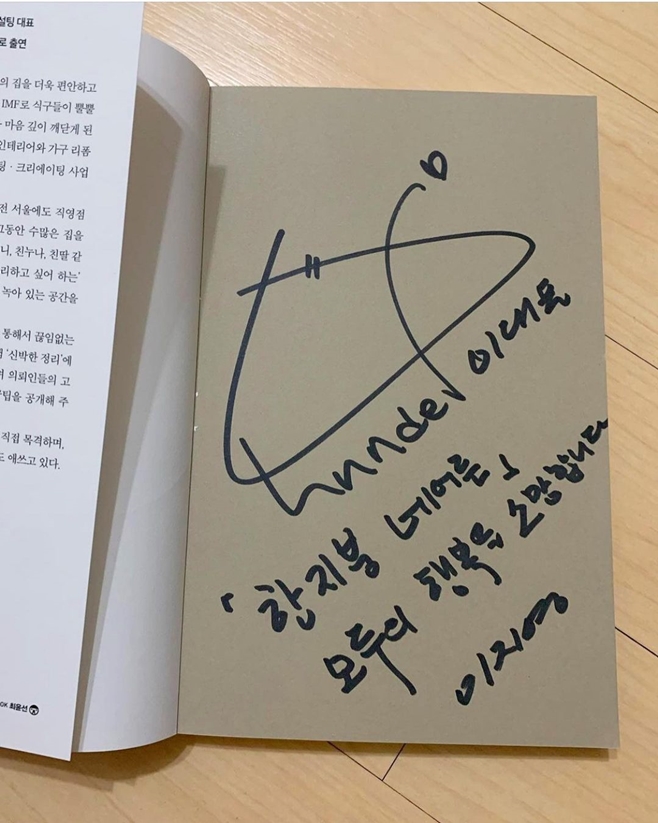 설팅 대표
로 출연
의 집을 더욱 편안하고
IMF로 식구들이 뿔뿔
마음 깊이 깨닫게 된
인테리어와 가구 리폼
팅·크리에이팅 사업
전 서울에도 직영점
그동안 수많은 집을
니, 친누나, 친딸 같
리하고 싶어 하는'
녹아 있는 공간을
통해서 끊임없는
'신박한 정리'에
며 의뢰인들의 고
팁을 공개해 주
직접 목격하며,
도 애쓰고 있다.
OK 최윤선
이대표
「한지붕 네어른」
모두의 행복을 소망합니다
이지영